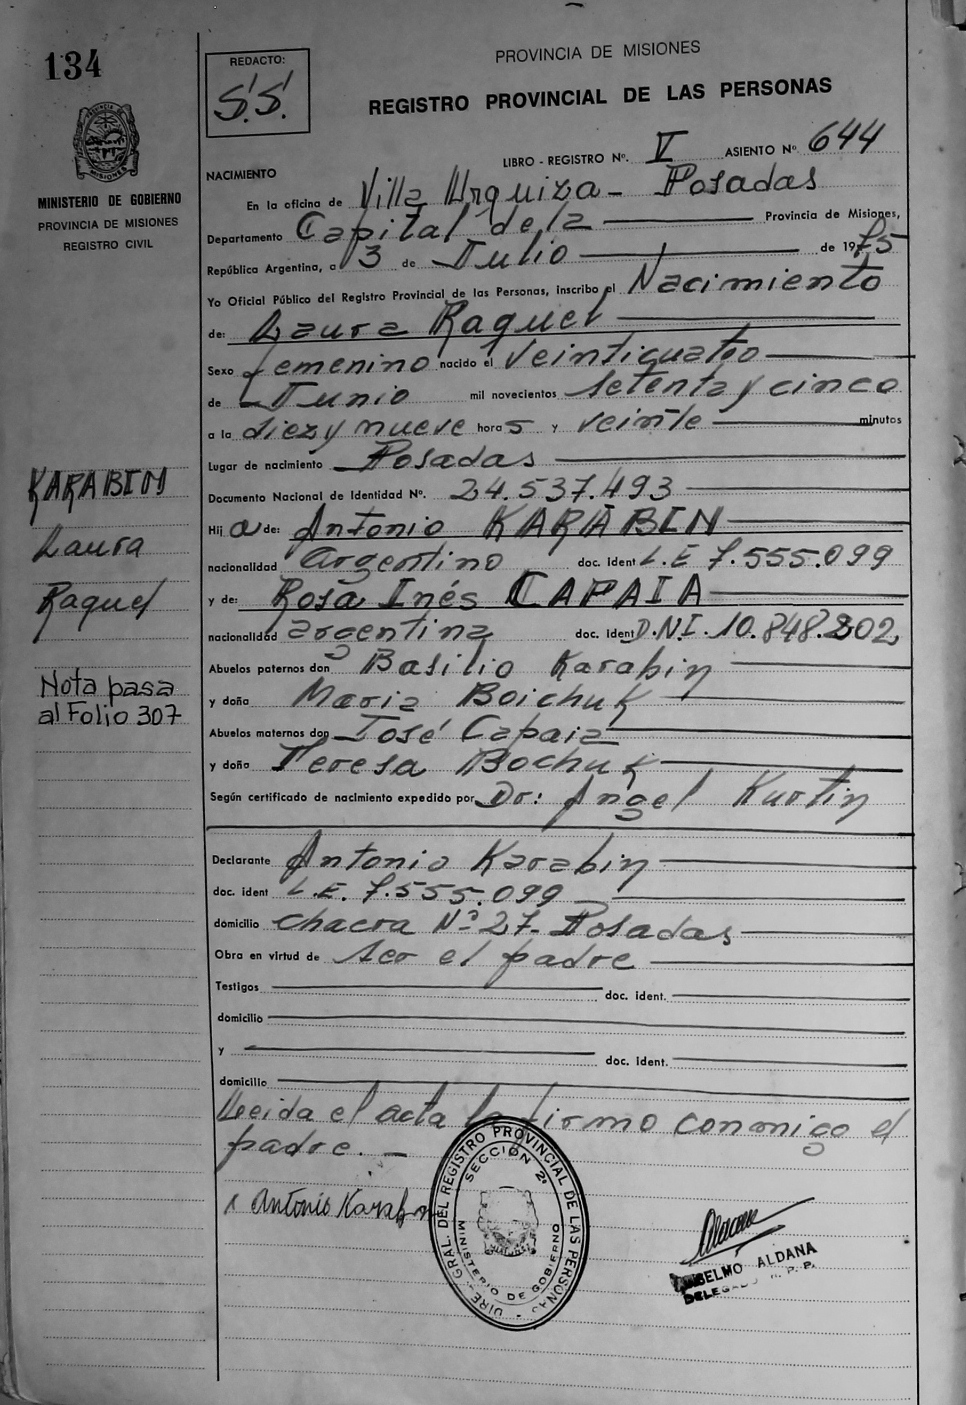 134
REDACTO:
S.S.
PROVINCIA DE MISIONES
REGISTRO PROVINCIAL DE LAS PERSONAS
MINISTERIO DE GOBIERNO
PROVINCIA DE MISIONES
REGISTRO CIVIL
LIBRO - REGISTRO Nº. V ASIENTO Nº 644
NACIMIENTO
En la oficina de Villa Urquiza - Posadas
Departamento Capital de la Provincia de Misiones,
República Argentina, a 3 de Julio de 1975
Yo Oficial Público del Registro Provincial de las Personas, inscribo el Nacimiento
de: Laura Raquel
Sexo femenino nacido el veinticuatro
de Junio mil novecientos setenta y cinco
a la diez y nueve horas y veinte minutos
Lugar de nacimiento Posadas
Documento Nacional de Identidad Nº. 24.537.493
Hija de: Antonio KARABIN
nacionalidad argentino doc. ident L.E 7.555.099
y de: Rosa Inés CAPAIA
nacionalidad argentina doc. ident D.N.I. 10.848.802
Abuelos paternos don Basilio Karabin
y doña Maria Boichuk
Abuelos maternos don José Capaia
y doña Teresa Bochuk
Según certificado de nacimiento expedido por Dr: Angel Kurtin
KARABIN
Laura
Raquel
Nota pasa
al Folio 307
Declarante Antonio Karabin
doc. ident L.E. 7.555.099
domicilio chacra Nº 27- Posadas
Obra en virtud de ser el padre
Testigos doc. ident.
domicilio
y doc. ident.
domicilio
Leida el acta la firmo conmigo el
padre. -
Antonio Karabin
DIRE. GRAL. DEL REGISTRO PROVINCIAL DE LAS PERSONAS
SECCIÓN 2ª
MINISTERIO DE GOBIERNO
ANSELMO ALDANA
DELEGADO R. P. P.